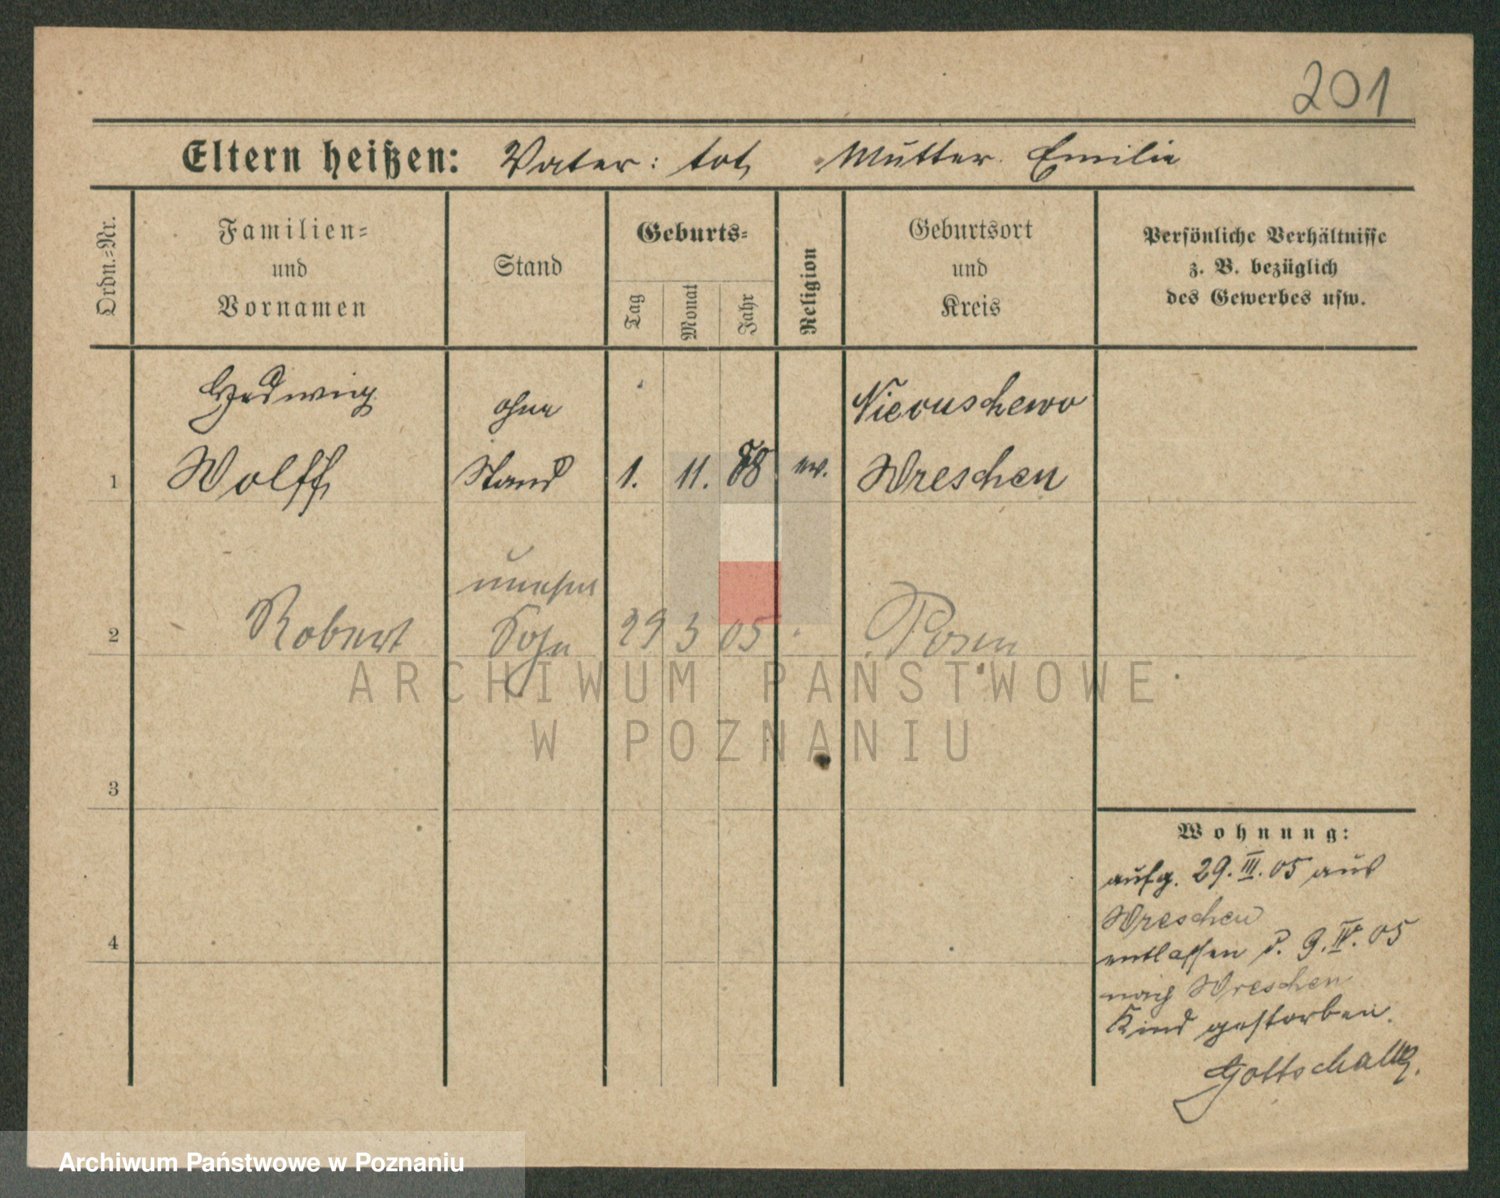 201
Eltern heißen: Vater: tot, Mutter Emilie
Ordn.-Nr.
Familien=
und
Vornamen
Stand
Geburts=
Tag
Monat
Jahr
Religion
Geburtsort
und
Kreis
Persönliche Verhältnisse
z. B. bezüglich
des Gewerbes usw.
Hedwig ohne
1 Wolff Stand 1. 11. 88 ev. Wreschen
unehel
2 Robert Sohn 29 3 05 Posen
ARCHIWUM PAŃSTWOWE
W POZNANIU
3
Wohnung:
aufg. 29. III. 05 aus
Wreschen
4 entlassen d. 9. IV. 05
nach Wreschen
Kind gestorben.
Archiwum Państwowe w Poznaniu